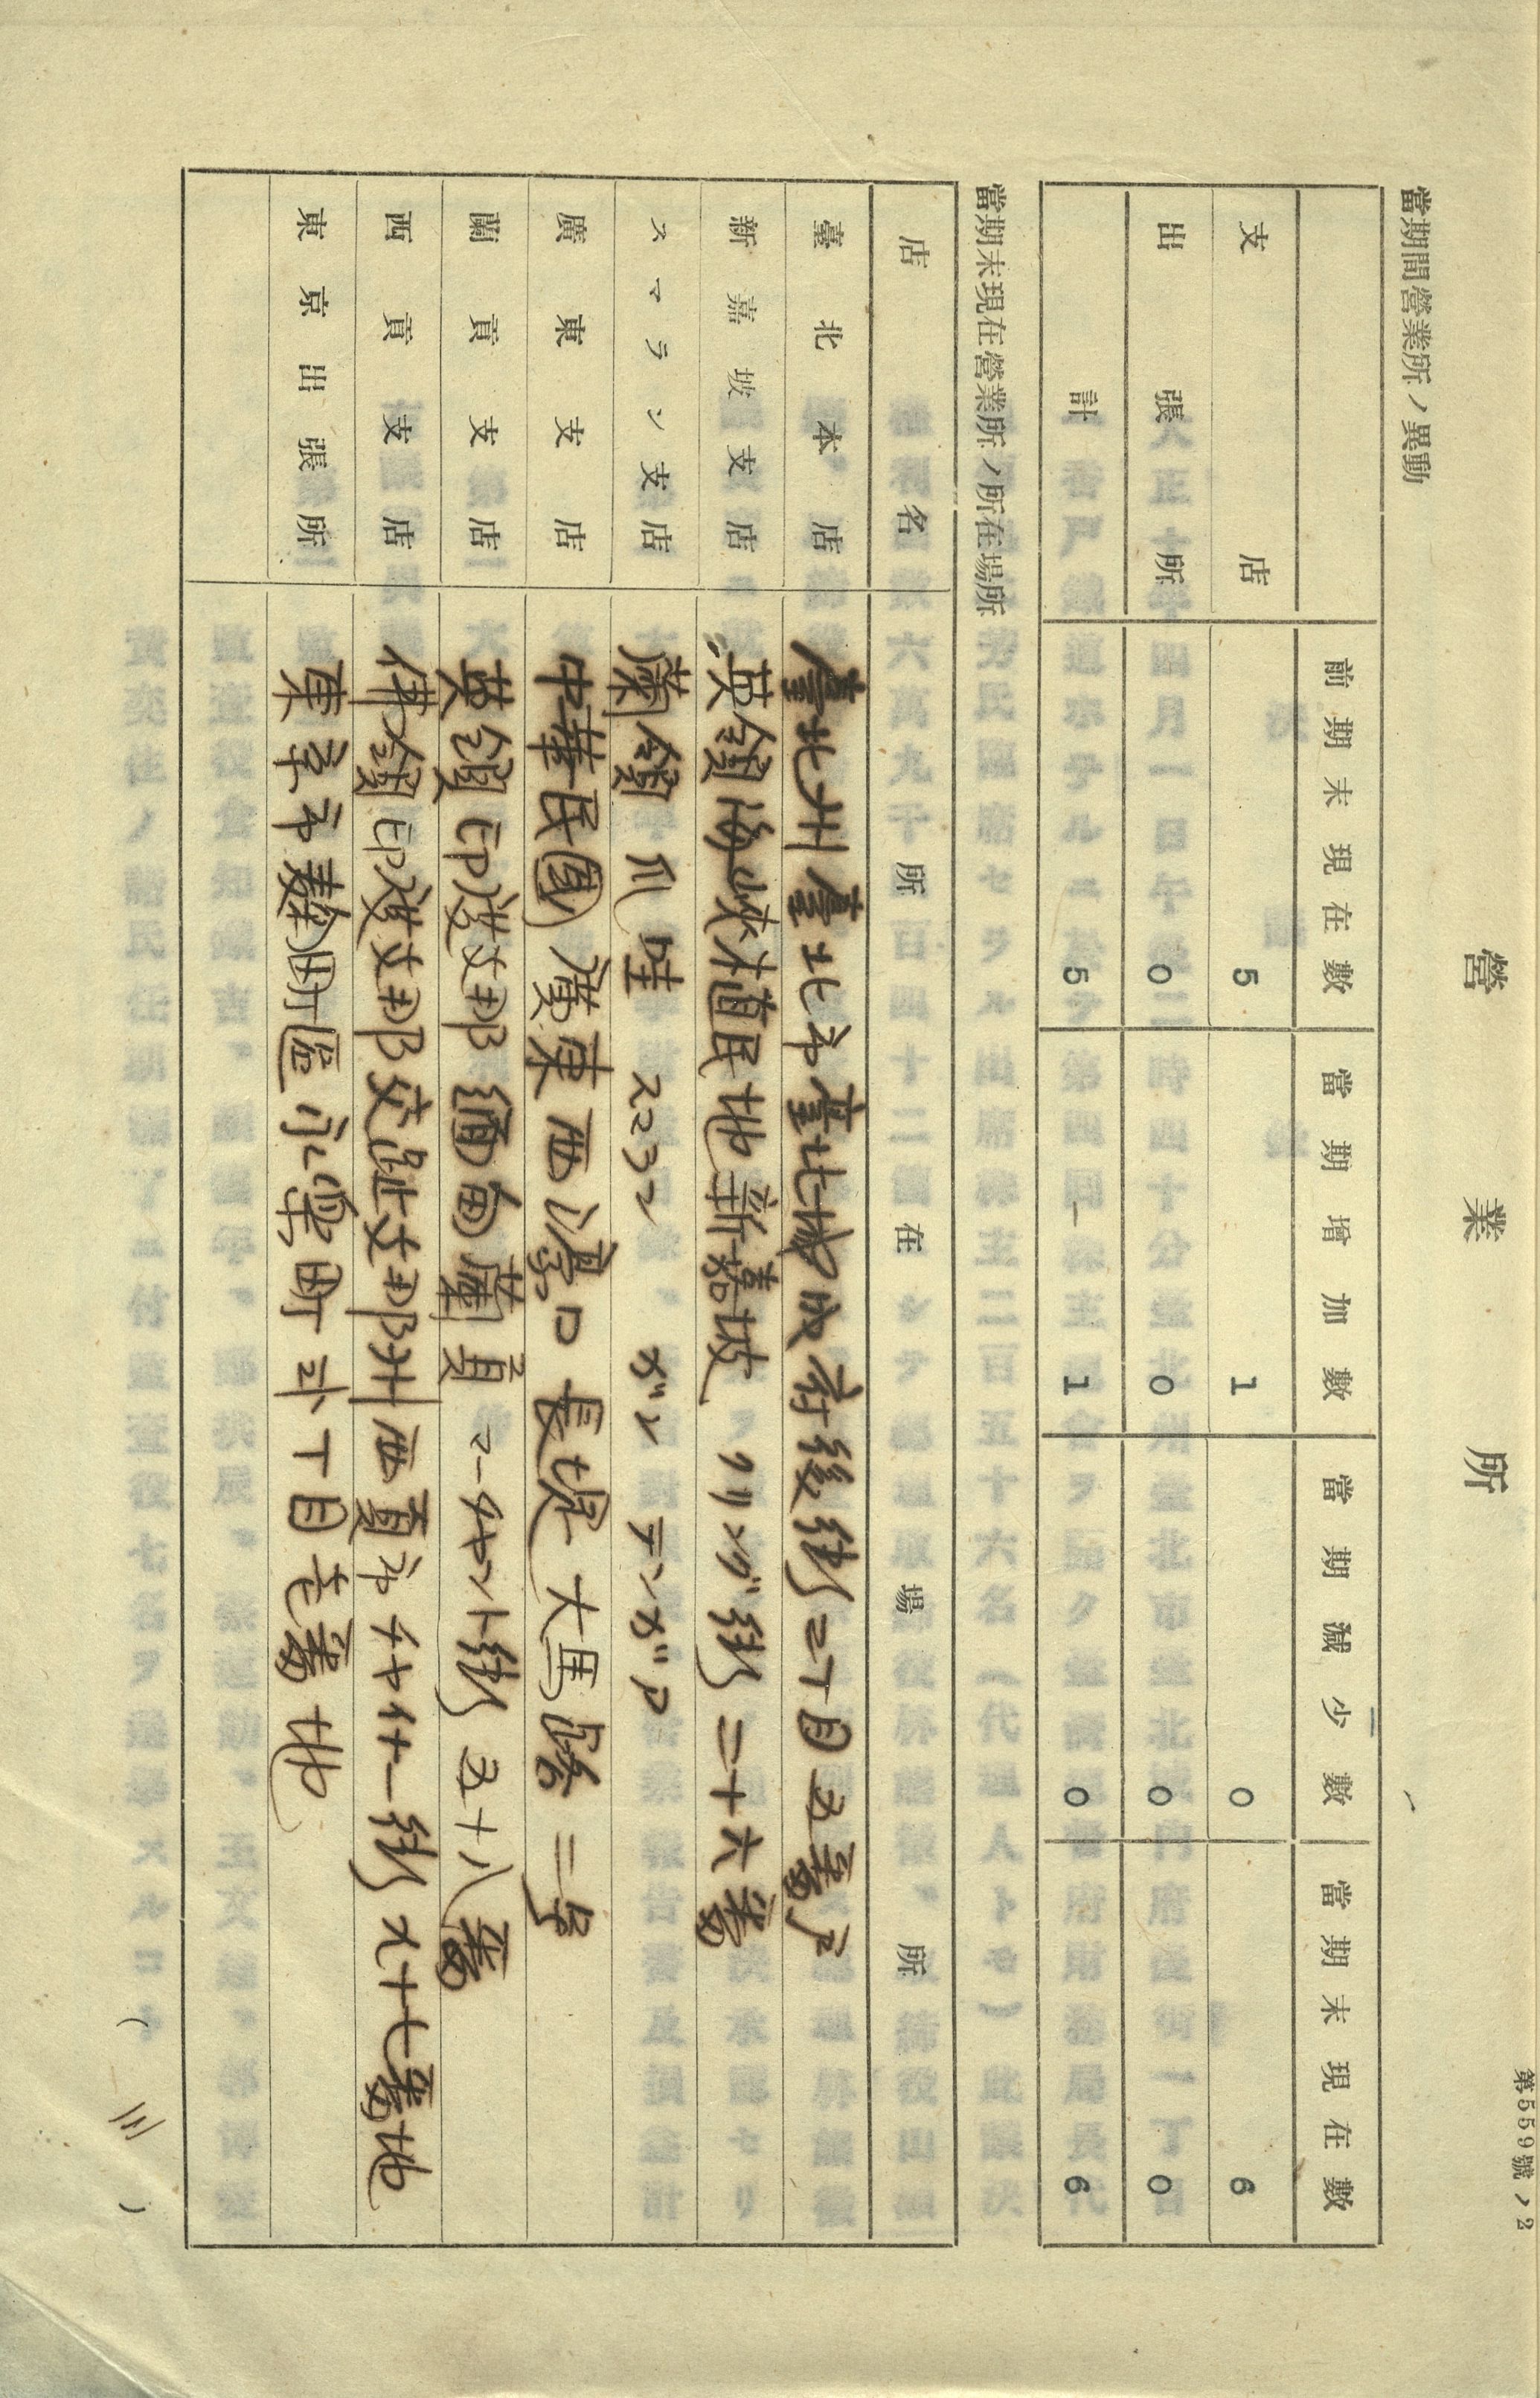 第559號ノ2
營業所
當期間營業所ノ異動
前期末現在數 當期增加數 當期減少數 當期末現在數
支店 5 1 0 6
出張所 0 0 0 0
計 5 1 0 6
當期末現在營業所ノ所在場所
店名 所在場所
臺北本店 臺北州臺北市臺北城内府後街二丁目五番戸
新嘉坡支店 英領海峽植民地新嘉坡 クリング街二十六番
スマラン支店 蘭領爪哇スマラン ガン テンガア
廣東支店 中華民國廣東西濠口長堤大馬路二号
蘭貢支店 英領印度支那緬甸蘭貢マーチヤント街五十八番
西貢支店 佛領印度支那交趾支那州西貢市チヤイナー街九十七番地
東京出張所 東京市麹町區永樂町弐丁目壱番地
(三)